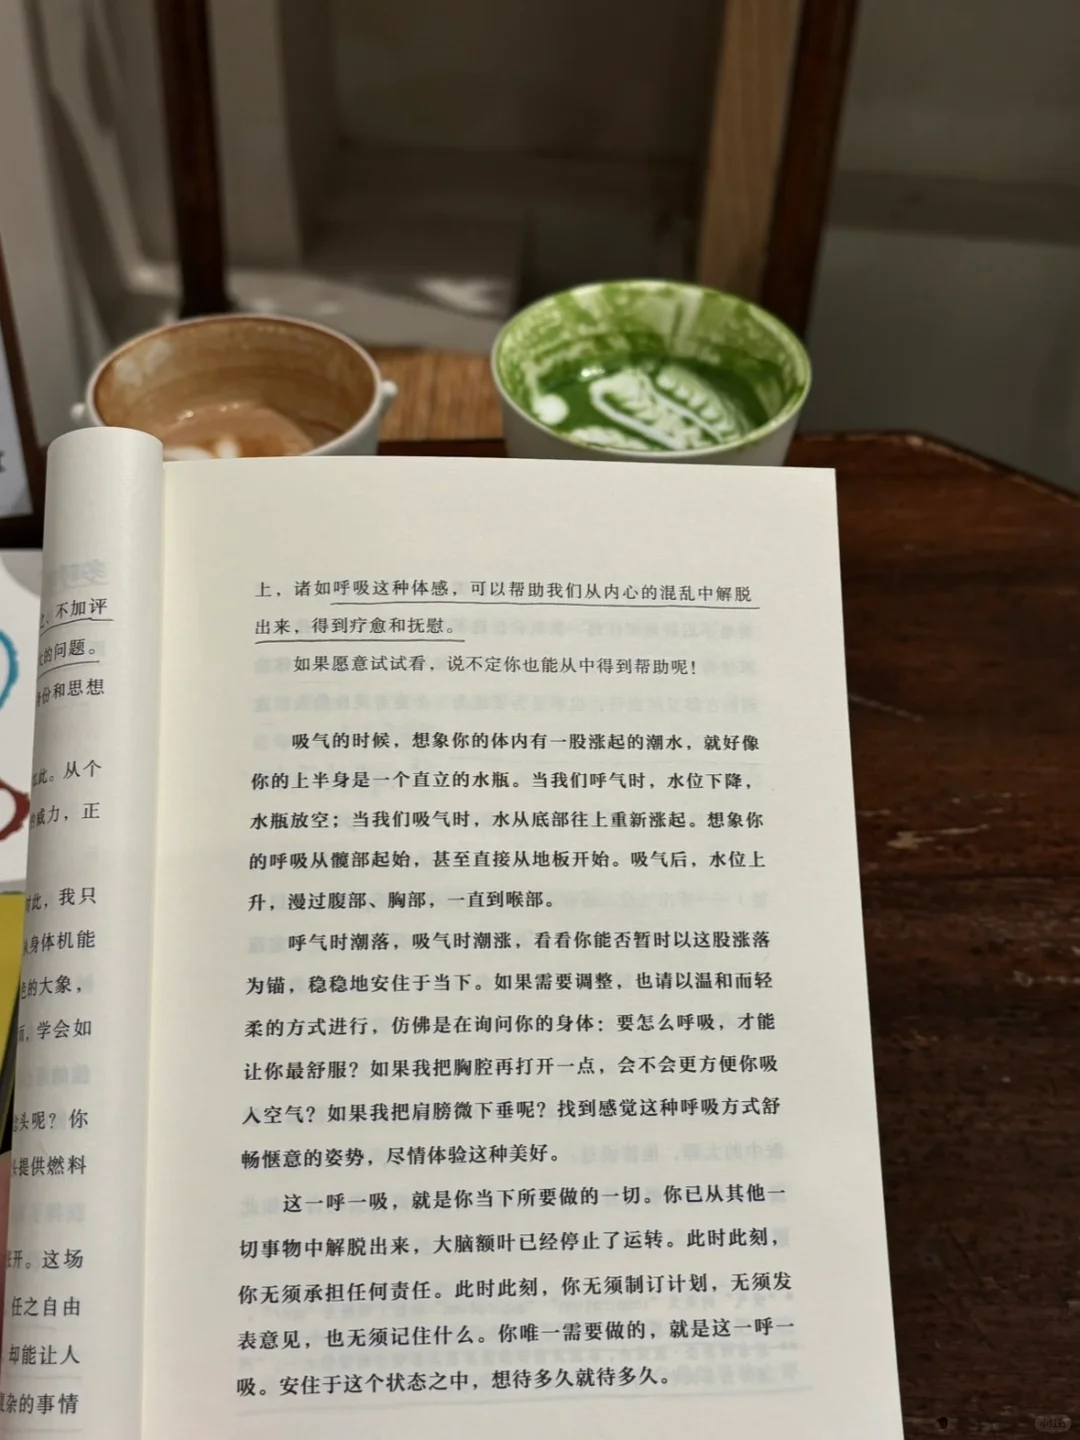 不加评
的问题。
份和思想
此。从个
威力，正
此，我只
身体机能
的大象，
学会如
头呢？你
提供燃料
开。这场
任之自由
却能让人
杂的事情
上，诸如呼吸这种体感，可以帮助我们从内心的混乱中解脱
出来，得到疗愈和抚慰。
如果愿意试试看，说不定你也能从中得到帮助呢！
吸气的时候，想象你的体内有一股涨起的潮水，就好像
你的上半身是一个直立的水瓶。当我们呼气时，水位下降，
水瓶放空；当我们吸气时，水从底部往上重新涨起。想象你
的呼吸从髋部起始，甚至直接从地板开始。吸气后，水位上
升，漫过腹部、胸部，一直到喉部。
呼气时潮落，吸气时潮涨，看看你能否暂时以这股涨落
为锚，稳稳地安住于当下。如果需要调整，也请以温和而轻
柔的方式进行，仿佛是在询问你的身体：要怎么呼吸，才能
让你最舒服？如果我把胸腔再打开一点，会不会更方便你吸
入空气？如果我把肩膀微下垂呢？找到感觉这种呼吸方式舒
畅惬意的姿势，尽情体验这种美好。
这一呼一吸，就是你当下所要做的一切。你已从其他一
切事物中解脱出来，大脑额叶已经停止了运转。此时此刻，
你无须承担任何责任。此时此刻，你无须制订计划，无须发
表意见，也无须记住什么。你唯一需要做的，就是这一呼一
吸。安住于这个状态之中，想待多久就待多久。